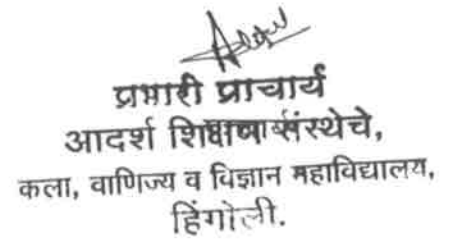 प्रभारी प्राचार्य
आदर्श शिक्षण संस्थेचे,
कला, वाणिज्य व विज्ञान महाविद्यालय,
हिंगोली.